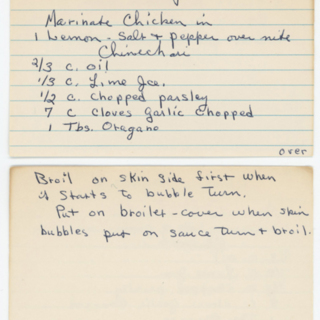 Marinate Chicken in
1 Lemon - Salt & pepper over nite
2/3 c. oil
1/3 c. Lime Jce.
1/2 c. Chopped parsley
7 c Cloves Garlic Chopped
1 Tbs. Oregano
over
Broil on skin side first when
it starts to bubble Turn.
Put on broiler - cover when skin
bubbles put on sauce Turn + broil.